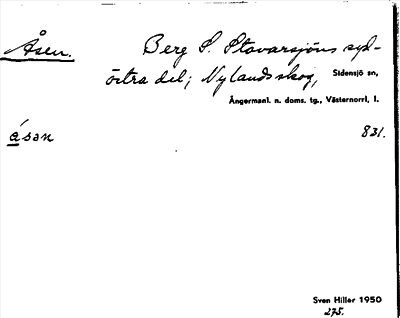 Åsen. Berg S. Stavarsjöns syd-
östra del; Nylandsskog, Sidensjö sn,
Ångermanl. n. doms. tg., Västernorrl. l.
åsan 831.
Sven Hiller 1950
275.